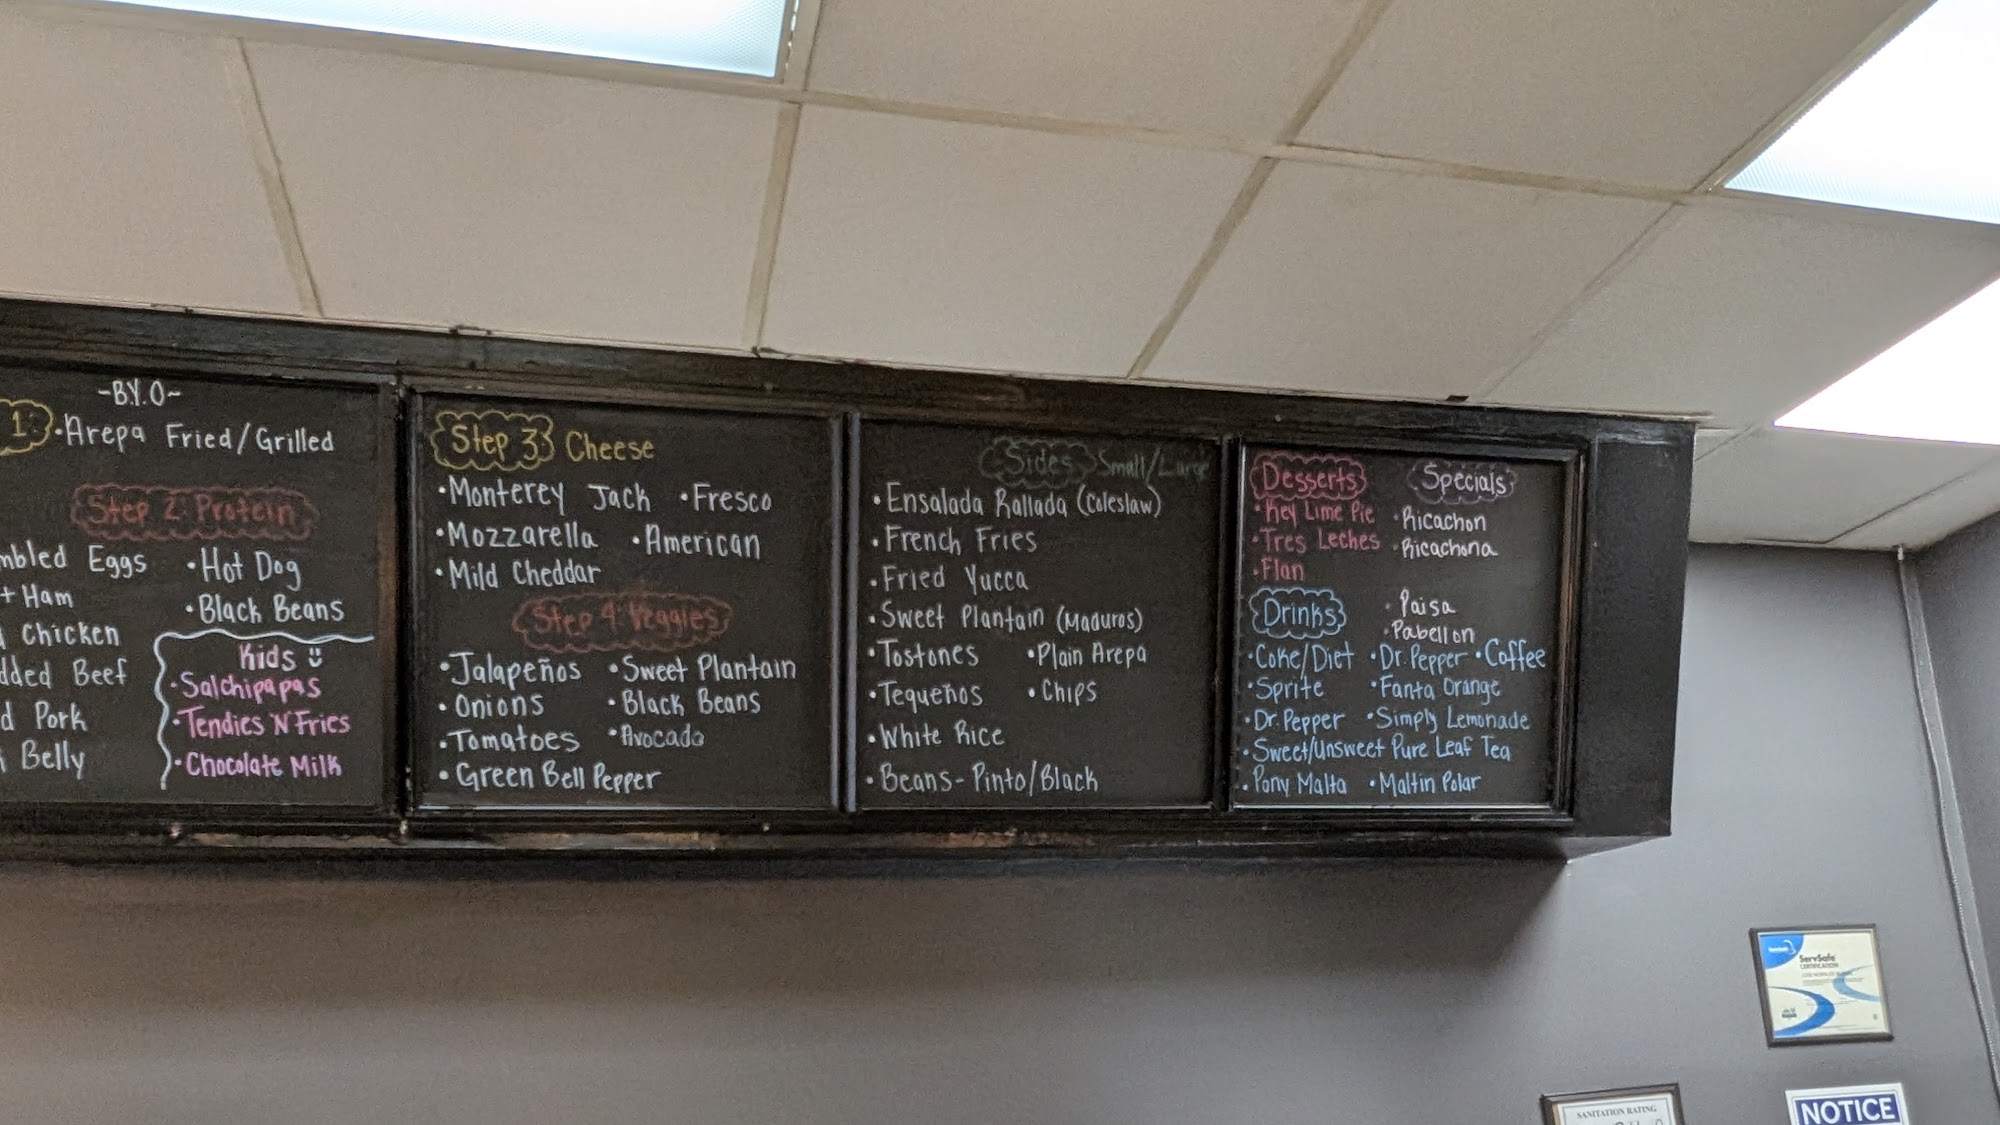 ~B.Y.O~
1: • Arepa Fried/Grilled
Step 2: Protein
Eggs • Hot Dog
Ham • Black Beans
Chicken
Beef
Pork
Belly
Kids
• Salchipapas
• Tendies 'N' Fries
• Chocolate Milk
Step 3: Cheese
• Monterey Jack • Fresco
• Mozzarella • American
• Mild Cheddar
Step 4: Veggies
• Jalapeños • Sweet Plantain
• Onions • Black Beans
• Tomatoes • Avocado
• Green Bell Pepper
Sides Small/Large
• Ensalada Rallada (Coleslaw)
• French Fries
• Fried Yucca
• Sweet Plantain (Maduros)
• Tostones • Plain Arepa
• Tequeños • Chips
• White Rice
• Beans - Pinto/Black
Desserts
• Key Lime Pie
• Tres Leches
• Flan
Specials
• Ricachon
• Ricachona
• Paisa
• Pabellon
Drinks
• Coke/Diet • Dr. Pepper • Coffee
• Sprite • Fanta Orange
• Dr. Pepper • Simply Lemonade
• Sweet/Unsweet Pure Leaf Tea
• Pony Malta • Maltin Polar
ServSafe
CERTIFICATION
SANITATION RATING
NOTICE